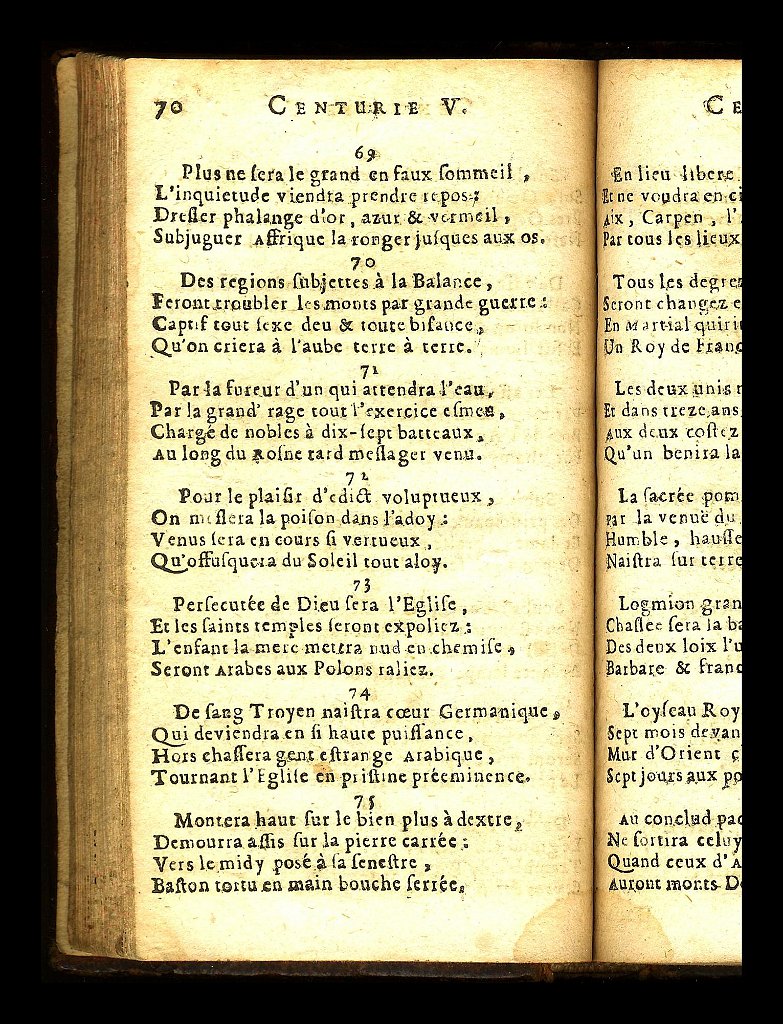 70 CENTURIE V.
69
Plus ne ſera le grand en faux ſommeil ,
L'inquietude viendra prendre repos :
Dreſſer phalange d'or, azur & vermeil ,
Subjuguer Affrique la ronger juſques aux os.
70
Des regions ſubjettes à la Balance ,
Feront troubler les monts par grande guerre :
Captif tout ſexe deu & toute biſance ,
Qu'on criera à l'aube terre à terre.
71
Par la fureur d'un qui attendra l'eau,
Par la grand' rage tout l'exercice eſmeu ,
Chargé de nobles à dix-ſept batteaux ,
Au long du Roſne tard meſſager venu.
72
Pour le plaiſir d'edict voluptueux ,
On meſlera la poiſon dans l'adoy :
Venus ſera en cours ſi vertueux ,
Qu'offuſquera du Soleil tout aloy.
73
Perſecutée de Dieu ſera l'Egliſe ,
Et les ſaints temples ſeront expoliez :
L'enfant la mere mettra nud en chemiſe ,
Seront Arabes aux Polons raliez.
74
De ſang Troyen naiſtra cœur Germanique ,
Qui deviendra en ſi haute puiſſance ,
Hors chaſſera gent eſtrange Arabique ,
Tournant l'Egliſe en priſtine préeminence.
75
Montera haut ſur le bien plus à dextre ,
Demourra aſſis ſur la pierre carrée :
Vers le midy posé à ſa ſeneſtre ,
Baſton tortu en main bouche ſerrée.
CE
En lieu libere
Et ne voudra en
Aix , Carpen , l'
Par tous les lieux
Tous les degrez
Seront changez
En Martial
Un Roy de
Les deux unis
Et dans treze ans
Aux deux coſtez
Qu'un benira la
La ſacrée
Par la venuë du
Humble ,
Naiſtra ſur terre
Logmion
Chaſſee ſera la
Des deux loix
Barbare &
L'oyſeau Roy
Sept mois
Mur d'Orient
Sept jours aux
Au conclud
Ne ſortira celuy
Quand ceux d'
Auront monts